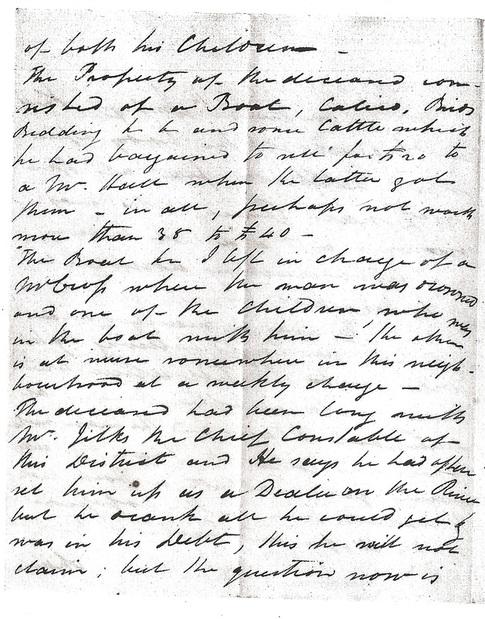 of both his Children —
The Property of the deceased con-
sisted of a Boat, Calico,
Bedding &c &c and some Cattle which
he had bargained to sell for to
a Mr. Hall when the latter got
them — in all, perhaps not worth
more than 38 to £40 —
The Boat &c I left in charge of a
where the man was drowned
and one of the Children, who was
in the boat with him — the other
is at nurse somewhere in this neigh-
bourhood at a weekly charge —
The deceased had been long with
Mr. Jilks the Chief Constable of
this District and He says he had often
set him up as a Dealer on the River
but he drank all he could get &
was in his Debt, this he will not
claim; but the question now is